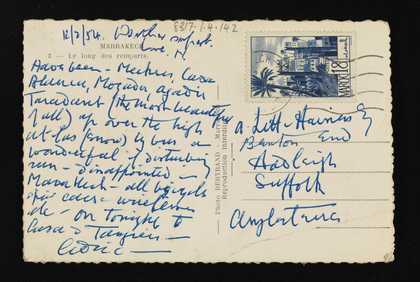 12/2/54.
8317.1.4.142
Love. M.
MARRAKECH
2 — Le long des remparts.
Have been — Meknes, Casa
Mogador, Agadir
Taroudant (the most beautiful
of all) up over the high
atlas (snow) by bus a
wonderful & disturbing
run — disappointed in
Marrakech — all bicycles
on tonight to
Casa & Tangier —
Cedric —
Photo BERTRAND
Reproduction interdite
MAROC
a. Lett-Haines Esq
Benton End
Hadleigh
Suffolk
Angleterre